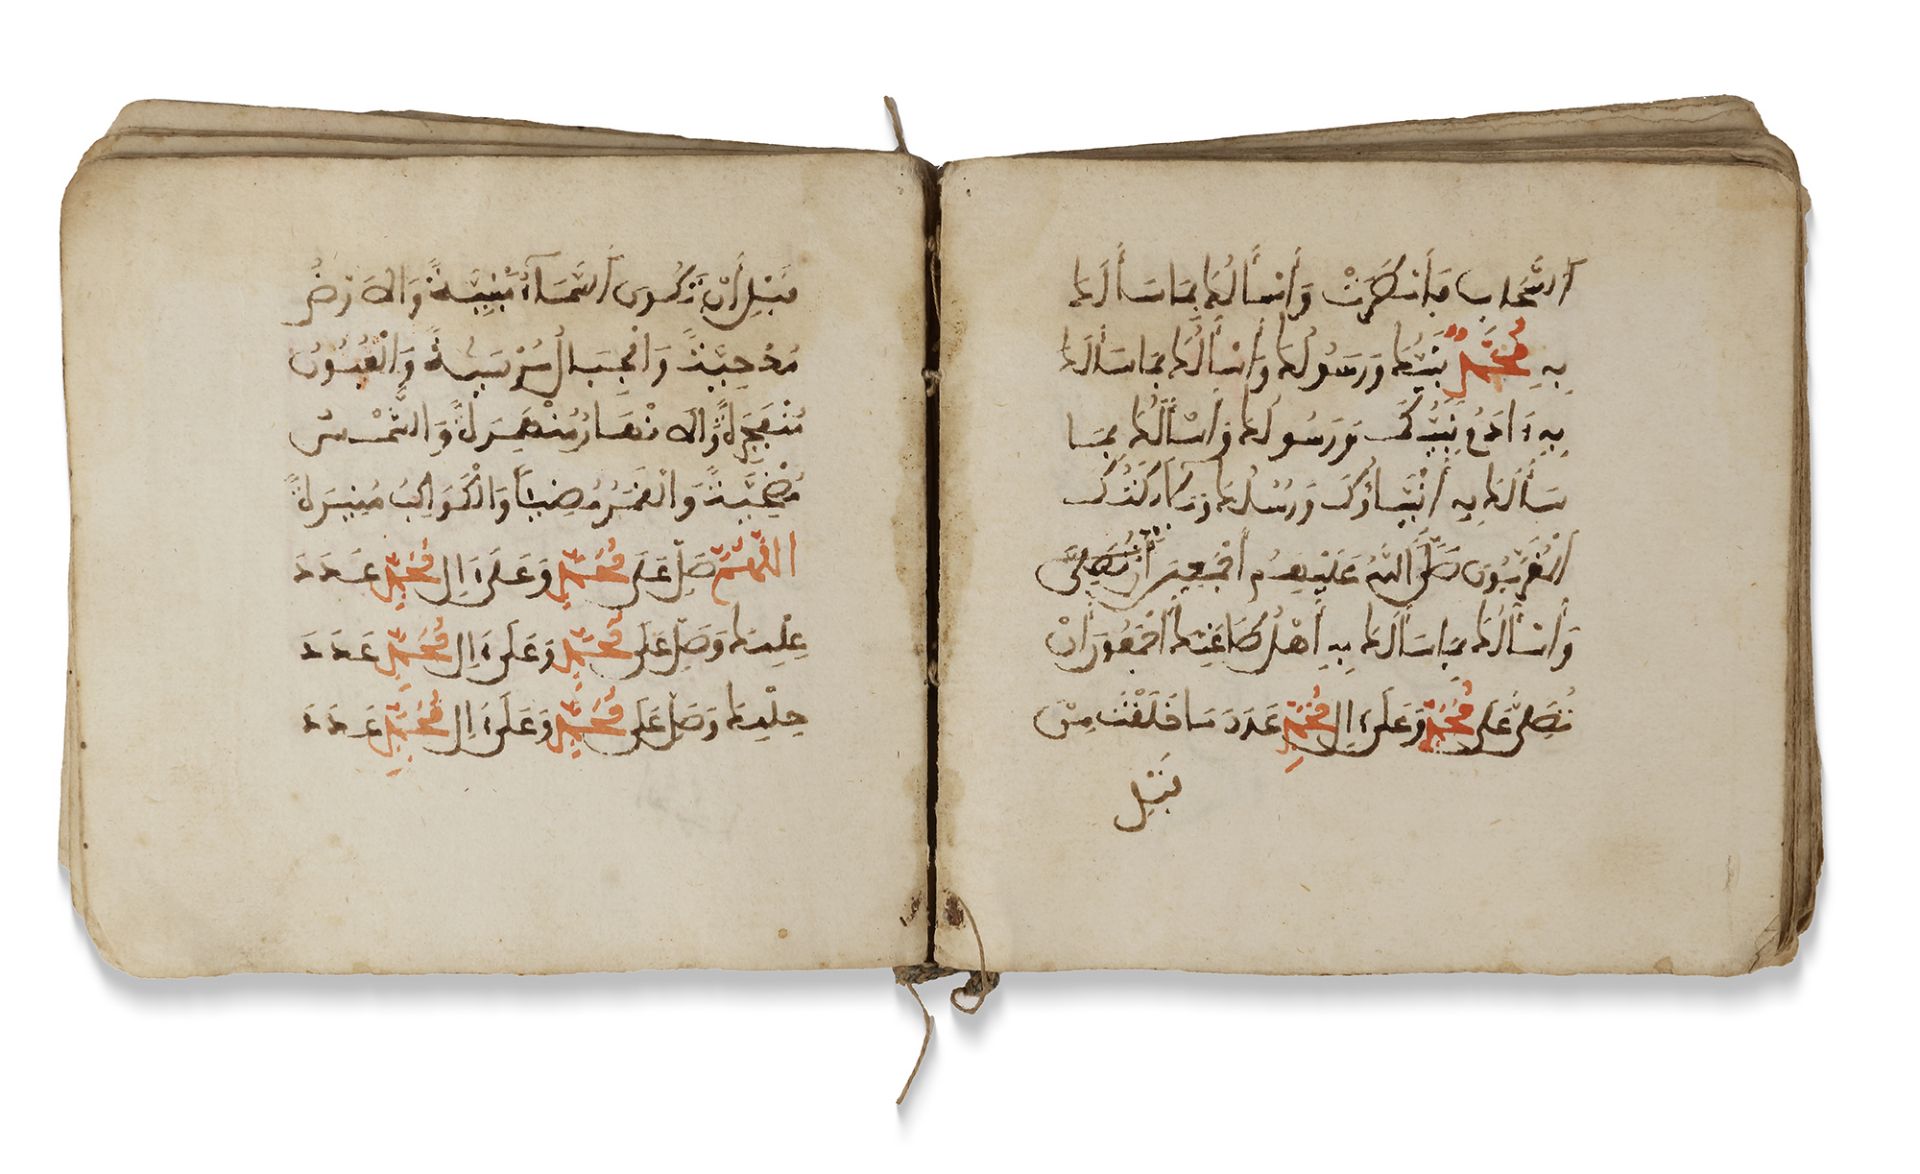 اَلسَّحَابِ فَأَمْطَرَتْ وَأَسْأَلُكَ بِمَا سَأَلَكَ
بِهِ مُحَمَّدٌ نَبِيُّكَ وَرَسُولُكَ وَأَسْأَلُكَ بِمَا سَأَلَكَ
بِهِ ءَادَمُ نَبِيُّكَ وَرَسُولُكَ وَأَسْأَلُكَ بِمَا
سَأَلَكَ بِهِ أَنْبِيَاؤُكَ وَرُسُلُكَ وَمَلَآئِكَتُكَ
اَلْمُقَرَّبُونَ صَلَّى اللَّهُ عَلَيْهِمُ أَجْمَعِينَ
وَأَسْأَلُكَ بِمَا سَأَلَكَ بِهِ أَهْلُ طَاعَتِكَ أَجْمَعُونَ أَنْ
تُصَلِّيَ عَلَى مُحَمَّدٍ وَعَلَى ءَالِ مُحَمَّدٍ عَدَدَ مَا خَلَقْتَ مِنْ
قَبْلِ
قَبْلِ أَنْ تَكُونَ اَلسَّمَآءُ مَبْنِيَّةً وَالَارْضُ
مَدْحِيَّةً وَالْجِبَالُ مُرْسِيَةً وَالْعُيُونُ
مُنْفَجِرَةً وَالَانْهَارُ مُنْهَمِرَةً وَالشَّمْسُ
مُضْحِيَّةً وَالْقَمَرُ مُضِيئاً وَالْكَوَاكِبُ مُنِيرَةً
اللَّهُمَّ صَلِّ عَلَى مُحَمَّدٍ وَعَلَى ءَالِ مُحَمَّدٍ عَدَدَ
عِلْمِكَ وَصَلِّ عَلَى مُحَمَّدٍ وَعَلَى ءَالِ مُحَمَّدٍ عَدَدَ
حِلْمِكَ وَصَلِّ عَلَى مُحَمَّدٍ وَعَلَى ءَالِ مُحَمَّدٍ عَدَدَ